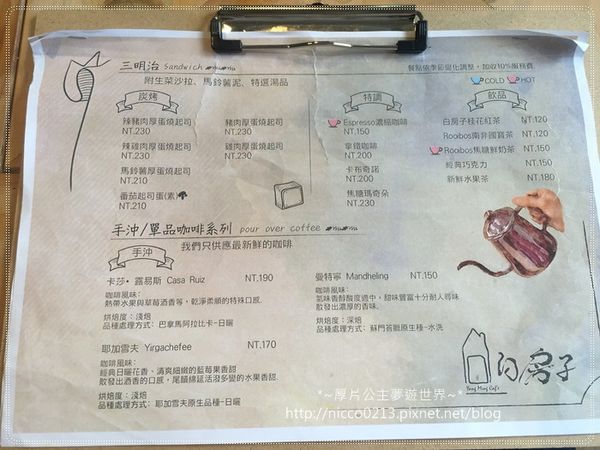 三明治 Sandwich
餐點依季節變化調整，加收10%服務費
附生菜沙拉、馬鈴薯泥、特選湯品
COLD HOT
炭烤
辣豬肉厚蛋燒起司
NT.230
豬肉厚蛋燒起司
NT.230
辣雞肉厚蛋燒起司
NT.230
雞肉厚蛋燒起司
NT.230
馬鈴薯厚蛋燒起司
NT.210
番茄起司厚蛋(素)
NT.210
特調
Espresso濃縮咖啡
NT.150
拿鐵咖啡
NT.180
卡布奇諾
NT.180
焦糖瑪奇朵
NT.230
飲品
白房子桂花紅茶 NT.120
Rooibos南非國寶茶 NT.120
Rooibos焦糖鮮奶茶 NT.150
經典巧克力 NT.180
新鮮水果茶 NT.180
手沖/單品咖啡系列 pour over coffee
手沖
我們只供應最新鮮的咖啡
卡莎·露易斯 Casa Ruiz NT.190
咖啡風味:
熱帶水果與草莓酒香等，乾淨柔順的特殊口感.
烘焙度：淺焙
品種處理方式: 巴拿馬阿拉比卡-日曬
耶加雪夫 Yirgachefee NT.170
咖啡風味：
經典日曬花香、清爽細緻的藍莓果香甜
散發出酒香的口感，尾韻綿延活潑多變的水果香甜.
烘焙度：淺焙
品種處理方式：耶加雪夫原生品種-日曬
曼特寧 Mandheling NT.150
咖啡風味：
氣味香醇酸度適中，甜味豐富十分耐人尋味
散發出濃厚的香味.
烘焙度：深焙
品種處理方式：蘇門答臘原生種-水洗
白房子
Yang Ming Cafe
*~厚片公主夢遊世界~*
http://nicco0213.pixnet.net/blog